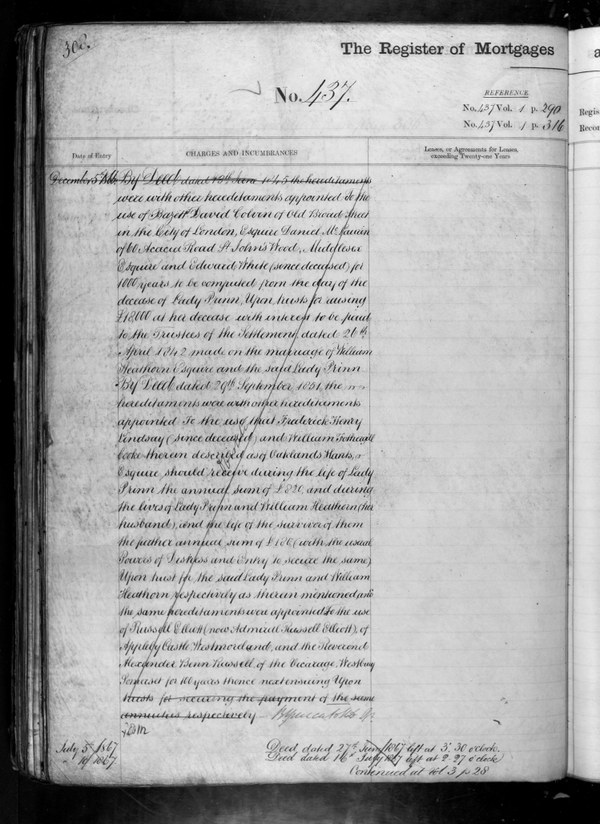 308.
The Register of Mortgages
No. 437.
REFERENCE
No. 437 Vol. 1 p. 290
No. 437 Vol. 1 p. 316
Regis
Recor
Date of Entry
CHARGES AND INCUMBRANCES
Leases, or Agreements for Leases, exceeding Twenty-one Years
December 5 By Deed dated June 1845 the hereditaments
were with other hereditaments appointed To the
use of David Colvin of Old Broad Street
in the City of London, Esquire Daniel
of 66 Acacia Road St John's Wood, Middlesex
Esquire and Edward White (since deceased) for
1000 years to be computed from the day of the
decease of Lady Prinn, Upon trusts for raising
£18,000 at her decease with interest to be paid
to the Trustees of the Settlement dated 26th
April 1842 made on the marriage of William
Heathorn Esquire and the said Lady Prinn
By Deed dated 29th September 1851, the
hereditaments were with other hereditaments
appointed To the use that Frederick Henry
Lindsay (since deceased) and William Fothergill
Cooke therein described as of Oaklands Hants,
Esquire, should receive during the life of Lady
Prinn the annual sum of £820, and during
the lives of Lady Prinn and William Heathorn (her
husband), and the life of the survivor of them
the further annual sum of (with the usual
Powers of Distress and Entry to secure the same)
Upon trust for the said Lady Prinn and William
Heathorn respectively as therein mentioned and
the same hereditaments were appointed to the use
of Russell Elliott (now Admiral Russell Elliott), of
Appleby Castle Westmorland, and the Reverend
Alexander Benn Russell of the Vicarage, Westbury
Somerset for 100 years thence next ensuing Upon
trusts for securing the payment of the same
annuities respectively
July 3rd 1867 Deed dated 27th June 1867 left at 3.30 o'clock
" 16 1867 Deed dated 16 July 1867 left at 2.27 o'clock
Continued at Vol 3 p 28